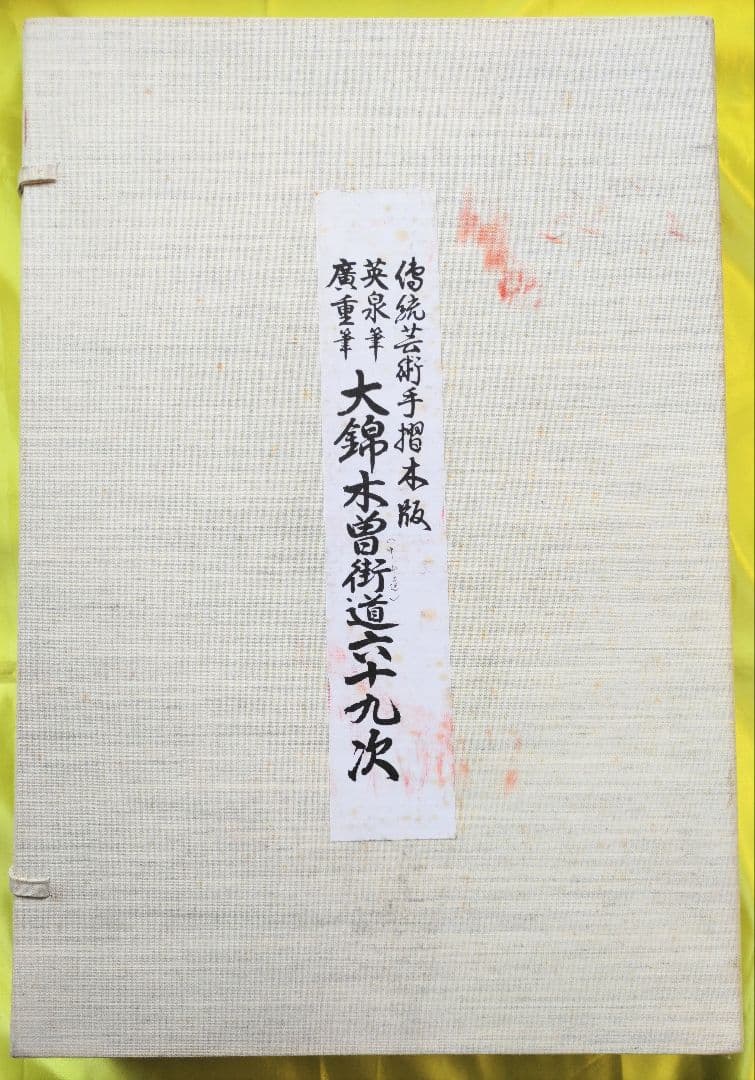 傳統芸術手摺木版
英泉筆
廣重筆
大錦木曽街道六十九次
（中山道）